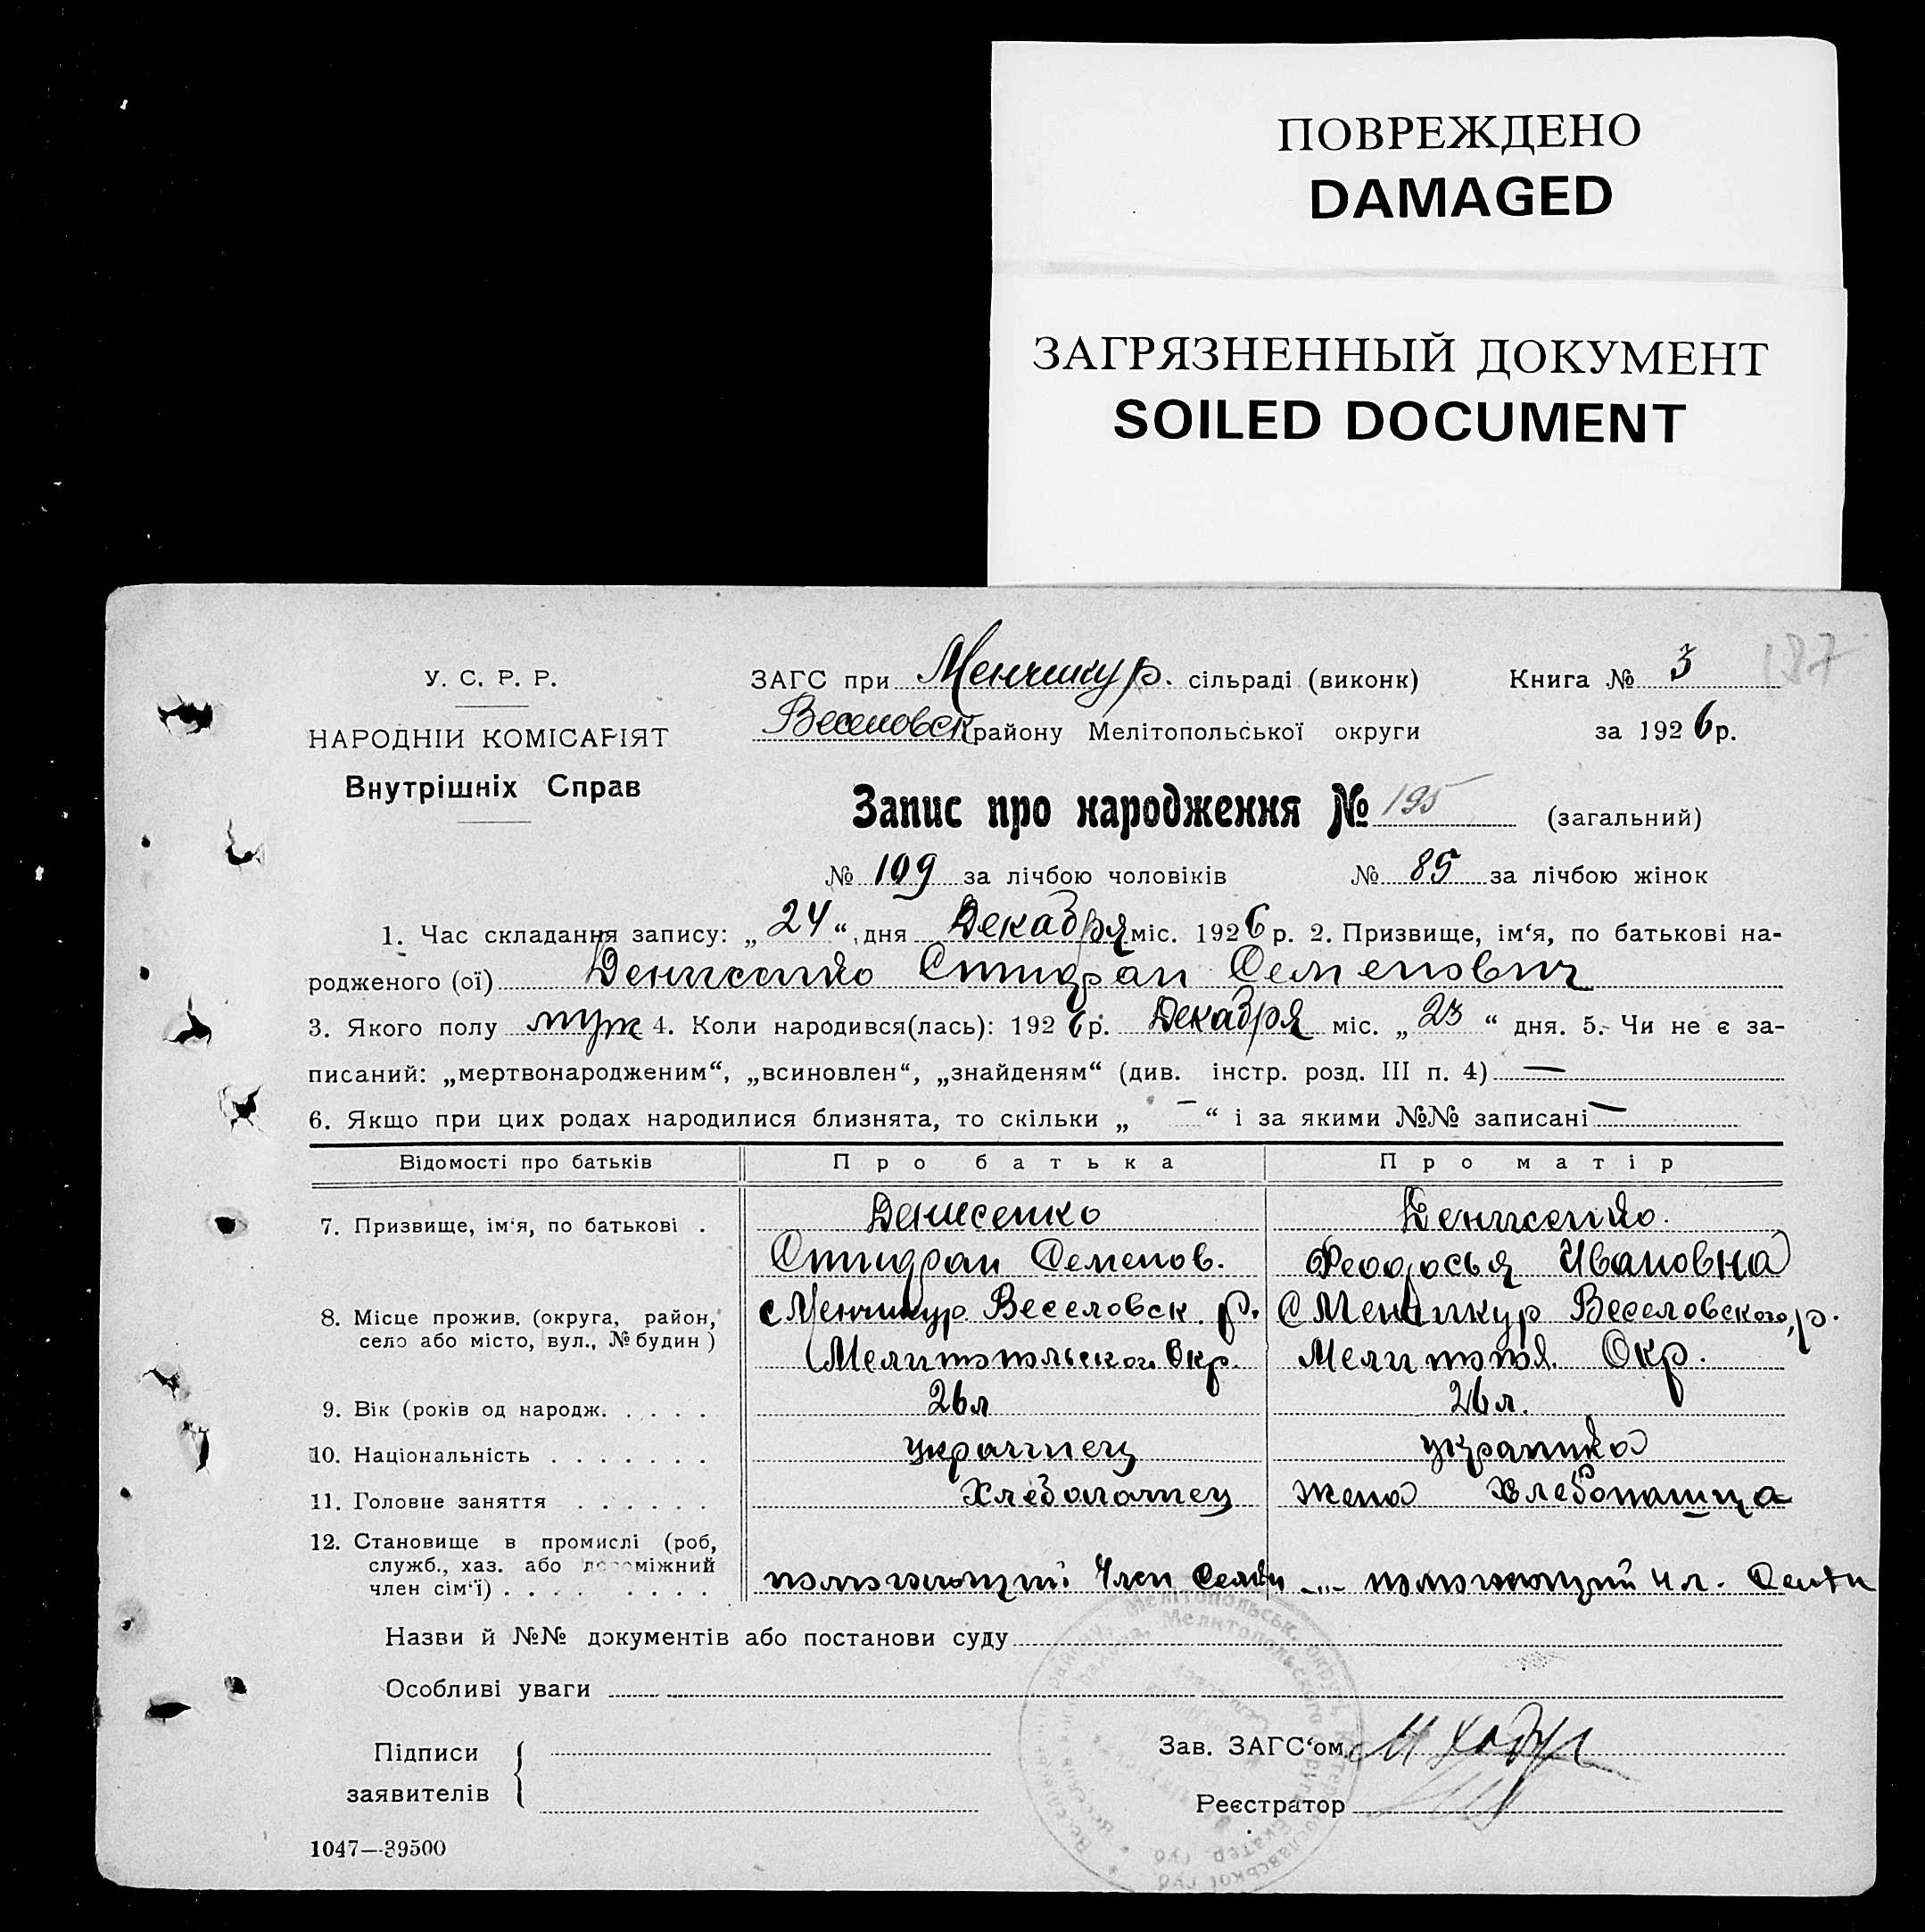 ПОВРЕЖДЕНО
DAMAGED
ЗАГРЯЗНЕННЫЙ ДОКУМЕНТ
SOILED DOCUMENT
187
У. С. Р. Р.
НАРОДНІИ КОМІСАРІЯТ
Внутрішніх Справ
ЗАГС при Менчикур. сільраді (виконк) Книга № 3
Веселовск району Мелітопольської округи за 1926 р.
Запис про народження № 195 (загальний)
№ 109 за лічбою чоловіків № 85 за лічбою жінок
1. Час складання запису: „ 24 “ дня Декабря міс. 1926 р. 2. Призвище, ім‘я, по батькові на-
родженого (ої) Денисенко Семенович
3. Якого полу муж 4. Коли народився(лась): 1926 р. Декабря міс. „ 23 “ дня. 5. Чи не є за-
писаний: „мертвонародженим“, „всиновлен“, „знайденям“ (див. інстр. розд. III п. 4) —
6. Якщо при цих родах народилися близнята, то скільки „ — “ і за якими №№ записані —
Відомості про батьків Про батька Про матір
7. Призвище, ім‘я, по батькові . Денисенко Денисенко.
Семенов. Феодосья Ивановна
8. Місце прожив. (округа, район, с Менчикур Веселовск. р. С Менчикур Веселовского р.
село або місто, вул., № будин ) Мелитопольского Окр. Мелитопол. Окр.
9. Вік (років од народж. . . . . 26 л 26 л.
10. Національність . . . . . . . украинец украинка
11. Головне заняття . . . . . . Хлебопашец жена Хлебопашца
12. Становище в промислі (роб,
служб., хаз. або допоміжний
член сім‘ї) . . . . . . . . . помогающий Член Семьи -"- помогающий чл. Семьи
Назви й №№ документів або постанови суду
Особливі уваги
Підписи
заявителів
Зав. ЗАГС‘ом
Реєстратор
1047—39500